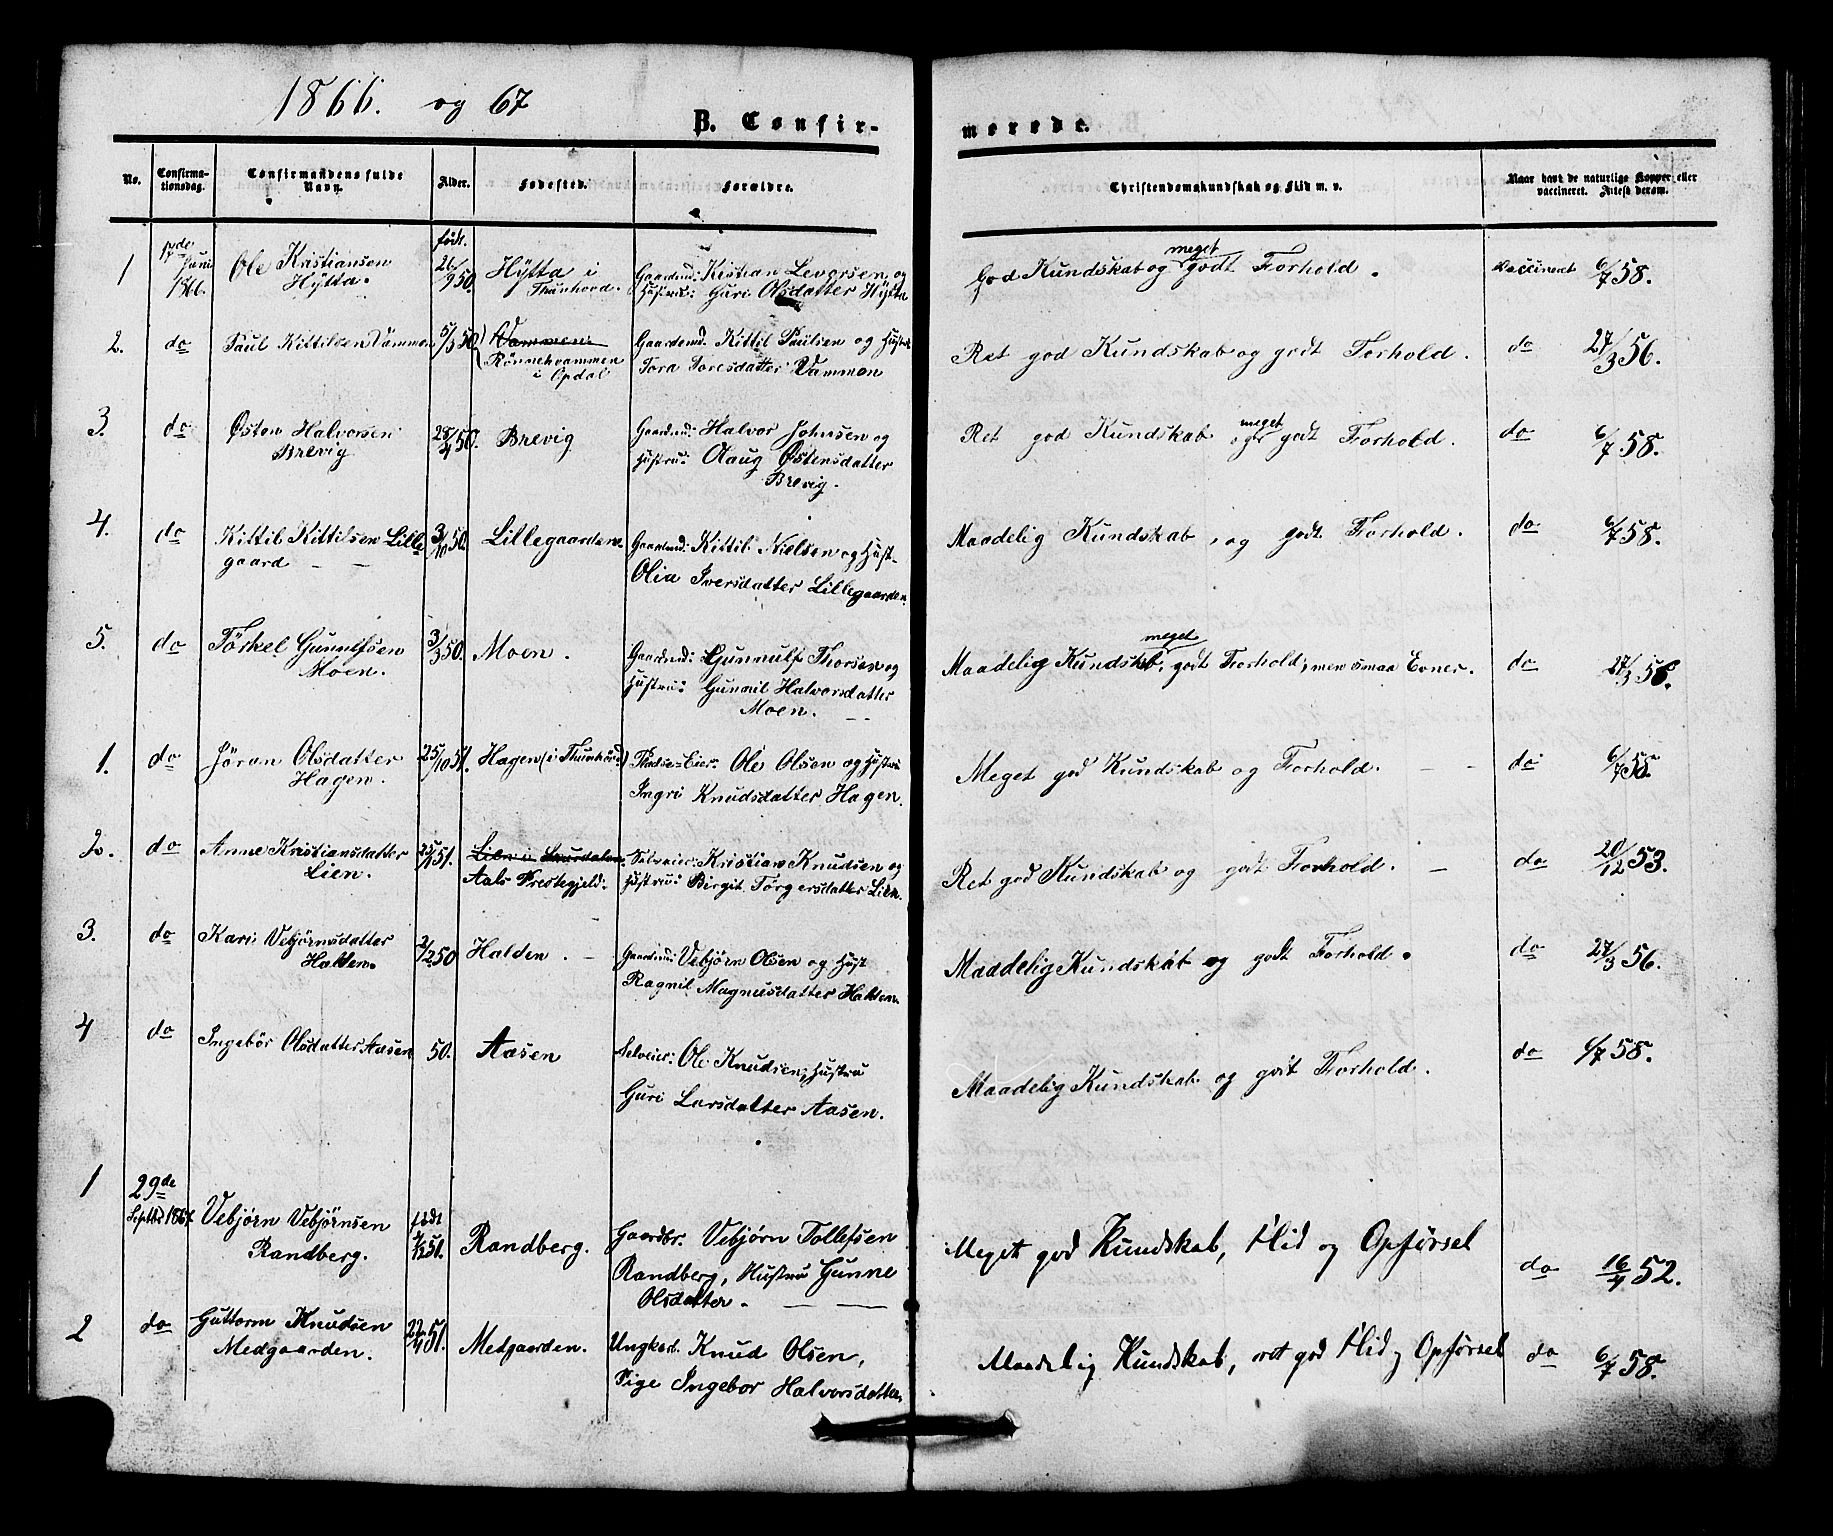 1866. og 67
B. Confir-
merede.
No.
Confirma-
tionsdag.
Confirmandens fulde
Navn.
Alder.
Fødested.
Forældre.
Christendomskundskab og Flid m. v.
Naar havt de naturlige Kopper eller
vaccineret. Attest derom.
1 17de Juni 1866. Ole Kristiansen Hÿtta. født. 26/9 50. Hÿtta i Thunhovd. Gaardmd: Kistian Levorsen og Hustru: Guri Olsdatter Hÿtta God Kundskab og meget godt Forhold. Vaccineret 6/7 58.
2. do Paul Kittilsen Vammen 5/3 50. Vammen. Rönnehvammen i Opdal Gaardmd. Kittil Paulsen og Hustru Tora Toresdatter Vammen Ret god Kundskab og godt Forhold. do 27/3 56.
3. do Østen Halvorsen Brevig 28/4 50. Brevig Gaardmd: Halvor Johnsen og Hustru: Aaug Østensdatter Brevig. Ret god Kundskab og meget godt Forhold. do 6/7 58.
4. do Kittil Kittilsen Lille gaard - - 3/10 50. Lillegaarden. Gaardmd: Kittil Nielsen og Hust- Olia Iversdatter Lillegaarden. Maadelig Kundskab, og godt Forhold. do 6/7 58.
5. do Törkel Gunnulfsen Moen. 3/3 50. Moen. Gaardmd: Gunnulf Thorsen og Hustru: Gunnil Halvorsdatter Moen. - - Maadelig Kundskab, meget godt Forhold, men smaa Evner. do 27/3 56.
1. do Jöran Olsdatter Hagen. 25/10 51. Hagen (i Thunhovd) Pladse-Eier: Ole Olsen og Hustru Ingri Knudsdatter Hagen. Meget god Kundskab og Forhold. - - do 6/7 58.
2. do Anne Kristiansdatter Lien. 51. Lien i Aals Prestegjeld. Selveier: Kristian Knudsen og Hustru: Birgit Törgersdatter Lien. Ret god Kundskab og godt Forhold. - do 20/12 53.
3. do Kari Vebjörnsdatter Halden. 2/2 50 Halden. - Gaardmd: Vebjörn Olsen og Hust Ragnil Magnusdatter Halden. Maadelig Kundskab og godt Forhold. do 27/3 56.
4 do Ingebör Olsdatter Aasen 50. Aasen Selveier: Ole Knudsen, Hustru Guri Larsdatter Aasen. Maadelig Kundskab og godt Forhold. do 6/7 58.
1 29de Septbr 1867. Vebjørn Vebjørnsen Randberg. født 51. Randberg. Gaardbr. Vebjørn Tollefsen Randberg, Hustru Gunne Olsdatter. - - Meget god Kundskab, Flid og Opførsel do 16/4 52.
2 do Guttorm Knudsen Medgaarden. 22/4 51. Medgaarden. Ungkarl. Knud Olsen, Pige Ingebor Halvorsdatter. Maadelig Kundskab, ret god Flid og Opførsel do 6/7 58.